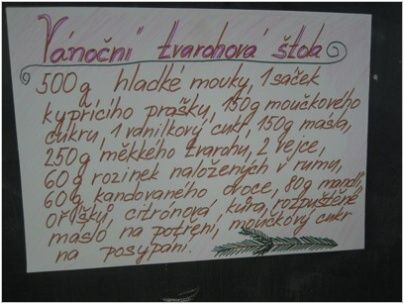 Vánoční tvarohová štola
500g hladké mouky, 1 saček
kypřícího prášku, 150g moučkového
cukru, 1 vanilkový cukr, 150g másla,
250g měkkého tvarohu, 2 vejce,
60g rozinek naložených v rumu,
60g kandovaného ovoce, 80g mandlí,
oříšků, citrónová kůra, rozpuštěné
máslo na potření, moučkový cukr
na posypání.